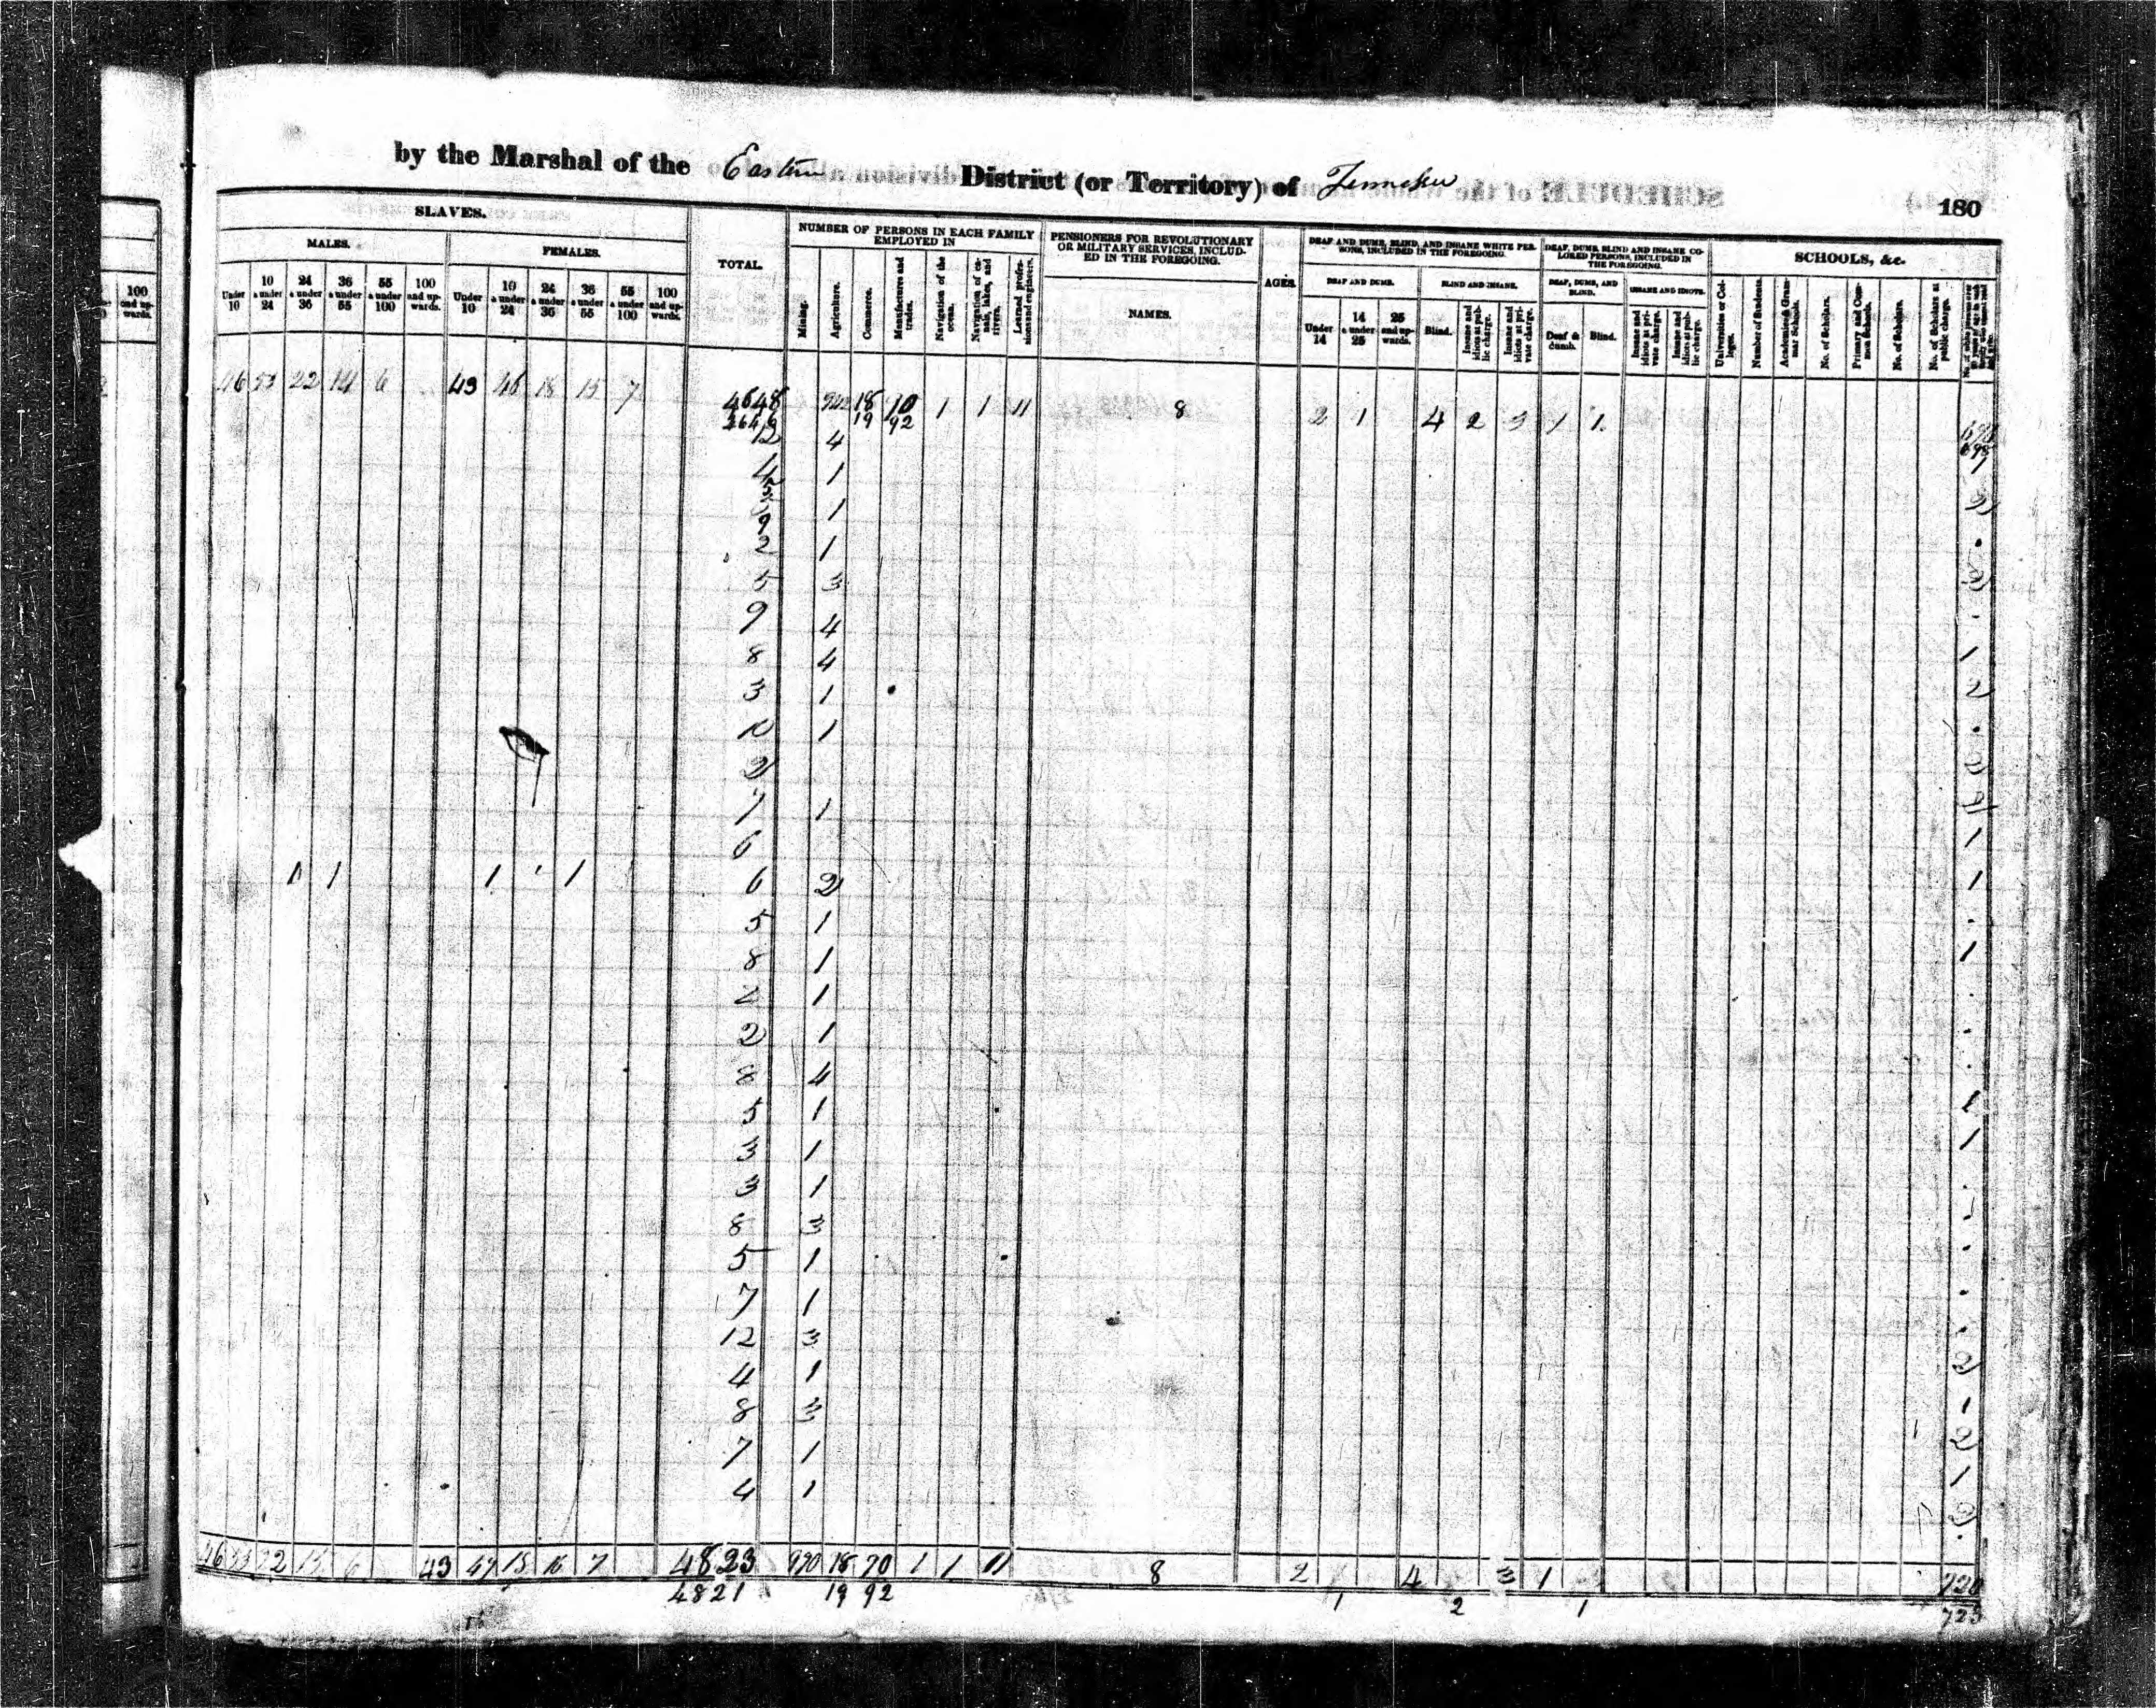 by the Marshal of the Eastern District (or Territory) of Tennessee
180
SLAVES.
TOTAL.
NUMBER OF PERSONS IN EACH FAMILY EMPLOYED IN
PENSIONERS FOR REVOLUTIONARY OR MILITARY SERVICES, INCLUDED IN THE FOREGOING.
AGES.
DEAF AND DUMB, BLIND, AND INSANE WHITE PERSONS, INCLUDED IN THE FOREGOING.
DEAF, DUMB, BLIND AND INSANE COLORED PERSONS, INCLUDED IN THE FOREGOING.
SCHOOLS, &c.
MALES.
FEMALES.
Under 10
10 & under 24
24 & under 36
36 & under 55
55 & under 100
100 and upwards.
Under 10
10 & under 24
24 & under 36
36 & under 55
55 & under 100
100 and upwards.
Mining.
Agriculture.
Commerce.
Manufactures and trades.
Navigation of the ocean.
Navigation of canals, lakes, and rivers.
Learned professions and engineers.
NAMES.
DEAF AND DUMB.
BLIND AND INSANE.
DEAF, DUMB, AND BLIND.
INSANE AND IDIOTS.
Under 14
14 & under 25
25 and upwards.
Blind.
Insane and idiots at public charge.
Insane and idiots at private charge.
Deaf & dumb.
Blind.
Insane and idiots at private charge.
Insane and idiots at public charge.
Universities or Colleges.
Number of Students.
Academies & Grammar Schools.
No. of Scholars.
Primary and Common Schools.
No. of Scholars.
No. of Scholars at public charge.
46 53 22 14 6 43 46 18 15 7 4648 942 18 10 1 1 11 8 2 1 4 2 3 1 1
19 92
12 4
4 1
1
9
2 1
5 3
9 4 1
8 4 2
3 1
10 1
2
7 1 1
6 1
1 1 1 1 6 2
5 1
8 1 1
1
2 1
8 4
5 1 1
3 1 1
3 1
8 3
5 1
7 1
12 3
4 1 2
8 3
7 1
4 1 1
46 53 22 6 43 47 18 16 7 4823 970 18 70 1 1 11 8 2 4 3 1
4821 19 92 1 2 1 723
100
and upwards.